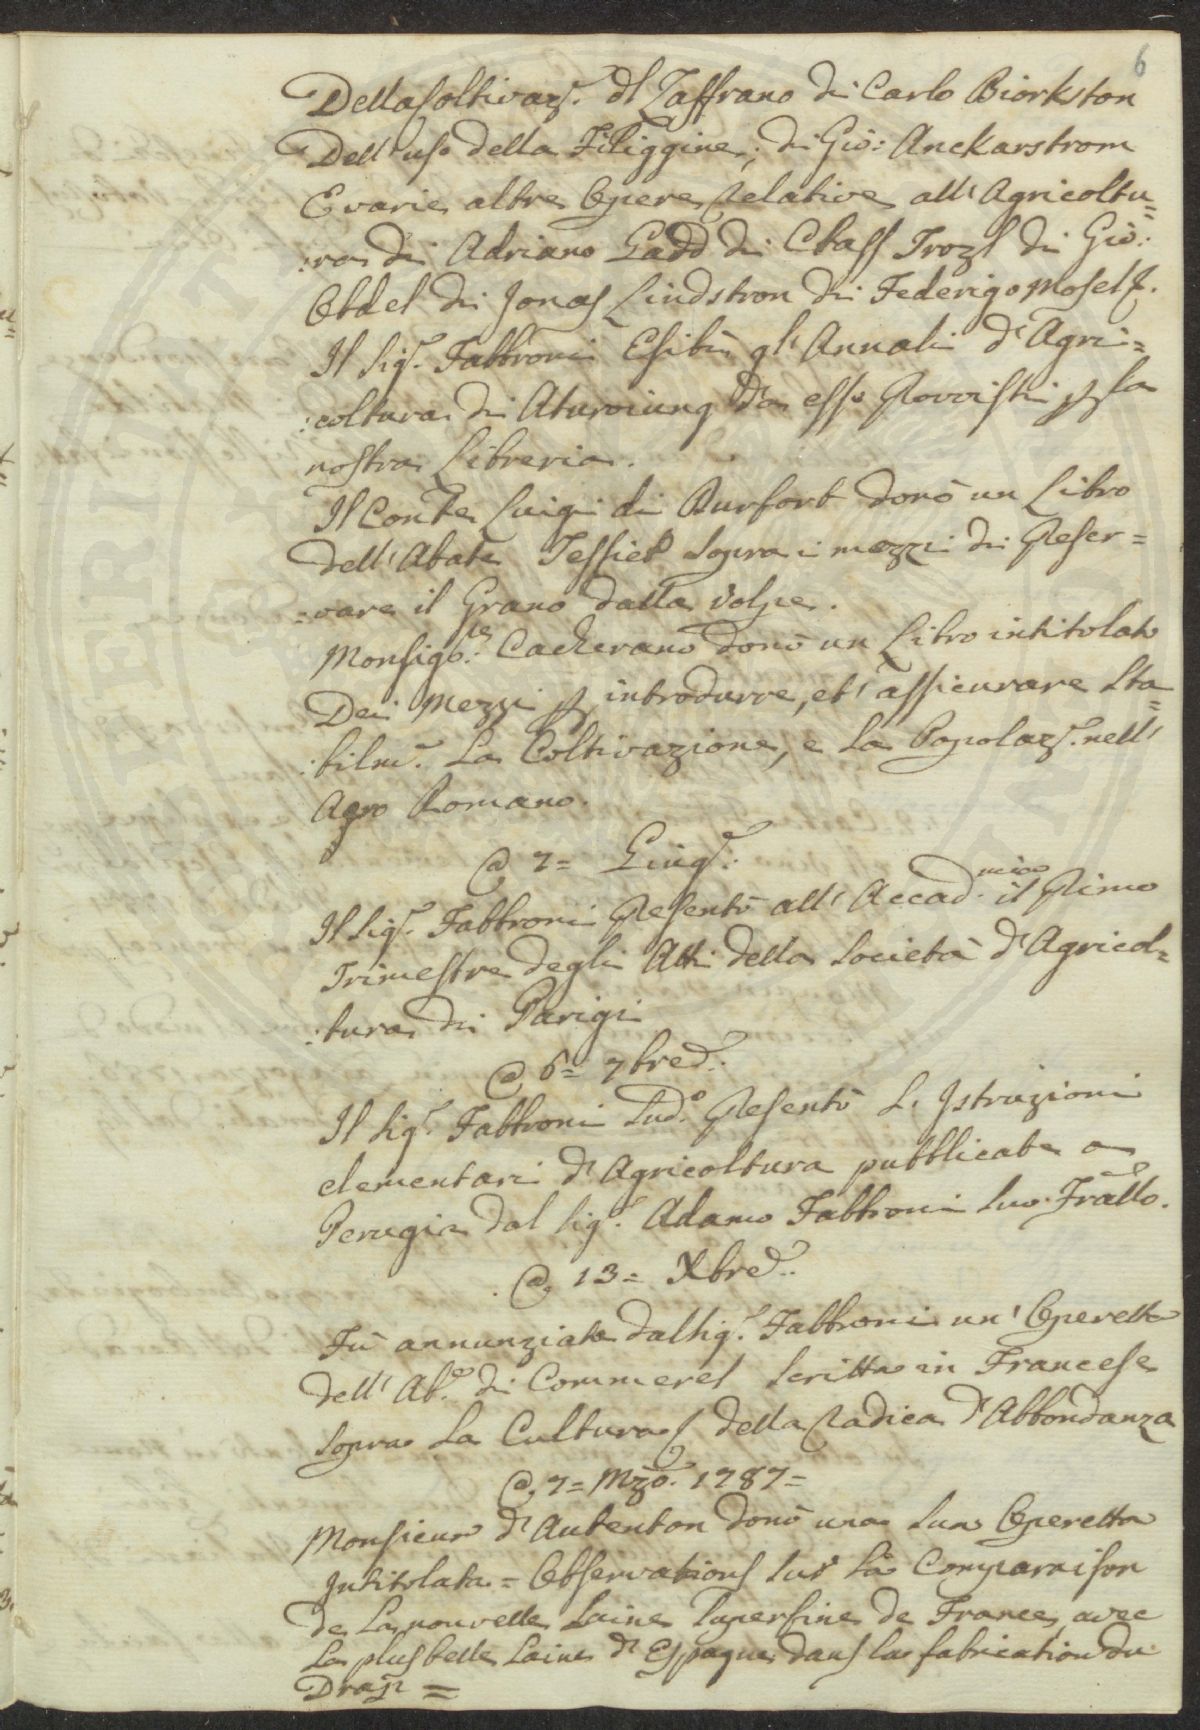 6
Della Coltivaz.e dl Zaffrano di Carlo Biorkston
Dell'uso della Filiggine, di Gio: Anckarstrom
E varie altre Opere relative all'Agricoltu=
:ra di Adriano Gadd di Class Trozl di Gio:
Obdel di Jonas Lindstron di Federigo Moself.
Il Sig.e Fabbroni Esibì gl'Annali d'Agri=
:coltura di da esso Provvisti p la
nostra Libreria.
Il Conte Luigi di Durfort donò un Libro
dell'Abate Tessier sopra i mezzi di Preser=
=vare il Grano dalla Volpe.
Monsig.re Cacherano donò un Libro intitolato
Dei Mezzi p introdurre, et' assicurare Sta=
:bilm.e La Coltivazione, e la Popolaz.e nell'
Agro Romano.
@ 7= Giug.o:
Il Sig.e Fabbroni Presentò all'Accad.mia il Primo
Trimestre degli Atti della Società d'Agricol=
:tura di Parigi
@ 6= 7bre d.o:
Il Sig.e Fabbroni Sud.o Presentò L'Istruzioni
elementari d'Agricoltura pubblicate a
Perugia dal Sig.e Adamo Fabbroni Suo Frãllo.
@ 13= Xbre d.o:
Fù annunziato dal Sig.e Fabbroni un'Operetta
dell'Ab.e di Commerel Scritta in Francese
sopra La Cultura della radica d'Abbondanza
@ 7= Mzo. 1787=
Monsieur d'Autenton donò una Sua Operetta
Intitolata = Observations Sur La Comparaison
de La nouvelle Laine Superfine de France, avec
La plus belle Laine d'Espagne dans la fabrication du
Drap =